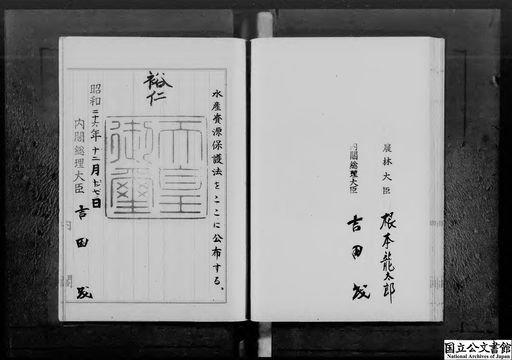 水産資源保護法をここに公布する。
裕仁
天皇御璽
昭和二十六年十二月十七日
内閣総理大臣 吉田茂
農林大臣 根本龍太郎
内閣総理大臣 吉田茂
国立公文書館
National Archives of Japan